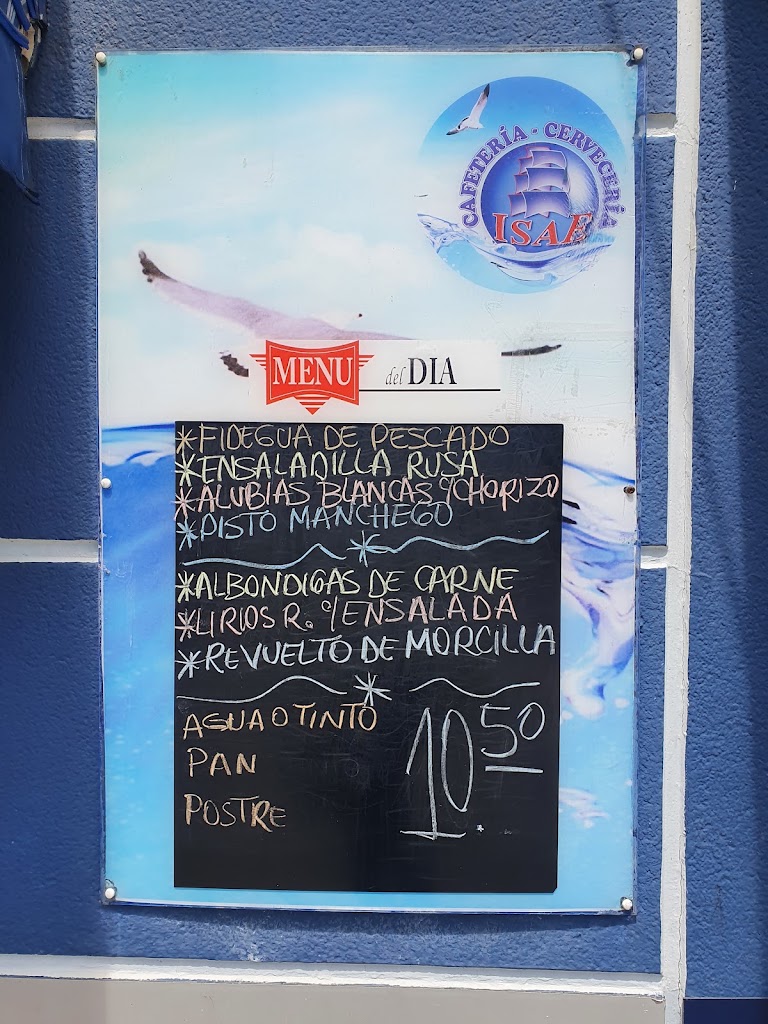 CAFETERÍA - CERVECERÍA
ISAE
MENU del DIA
*FIDEGUA DE PESCADO
*ENSALADILLA RUSA
*ALUBIAS BLANCAS c/CHORIZO
*PISTO MANCHEGO
*ALBONDIGAS DE CARNE
*LIRIOS R. c/ENSALADA
*REVUELTO DE MORCILLA
AGUA O TINTO
PAN
POSTRE
10.50